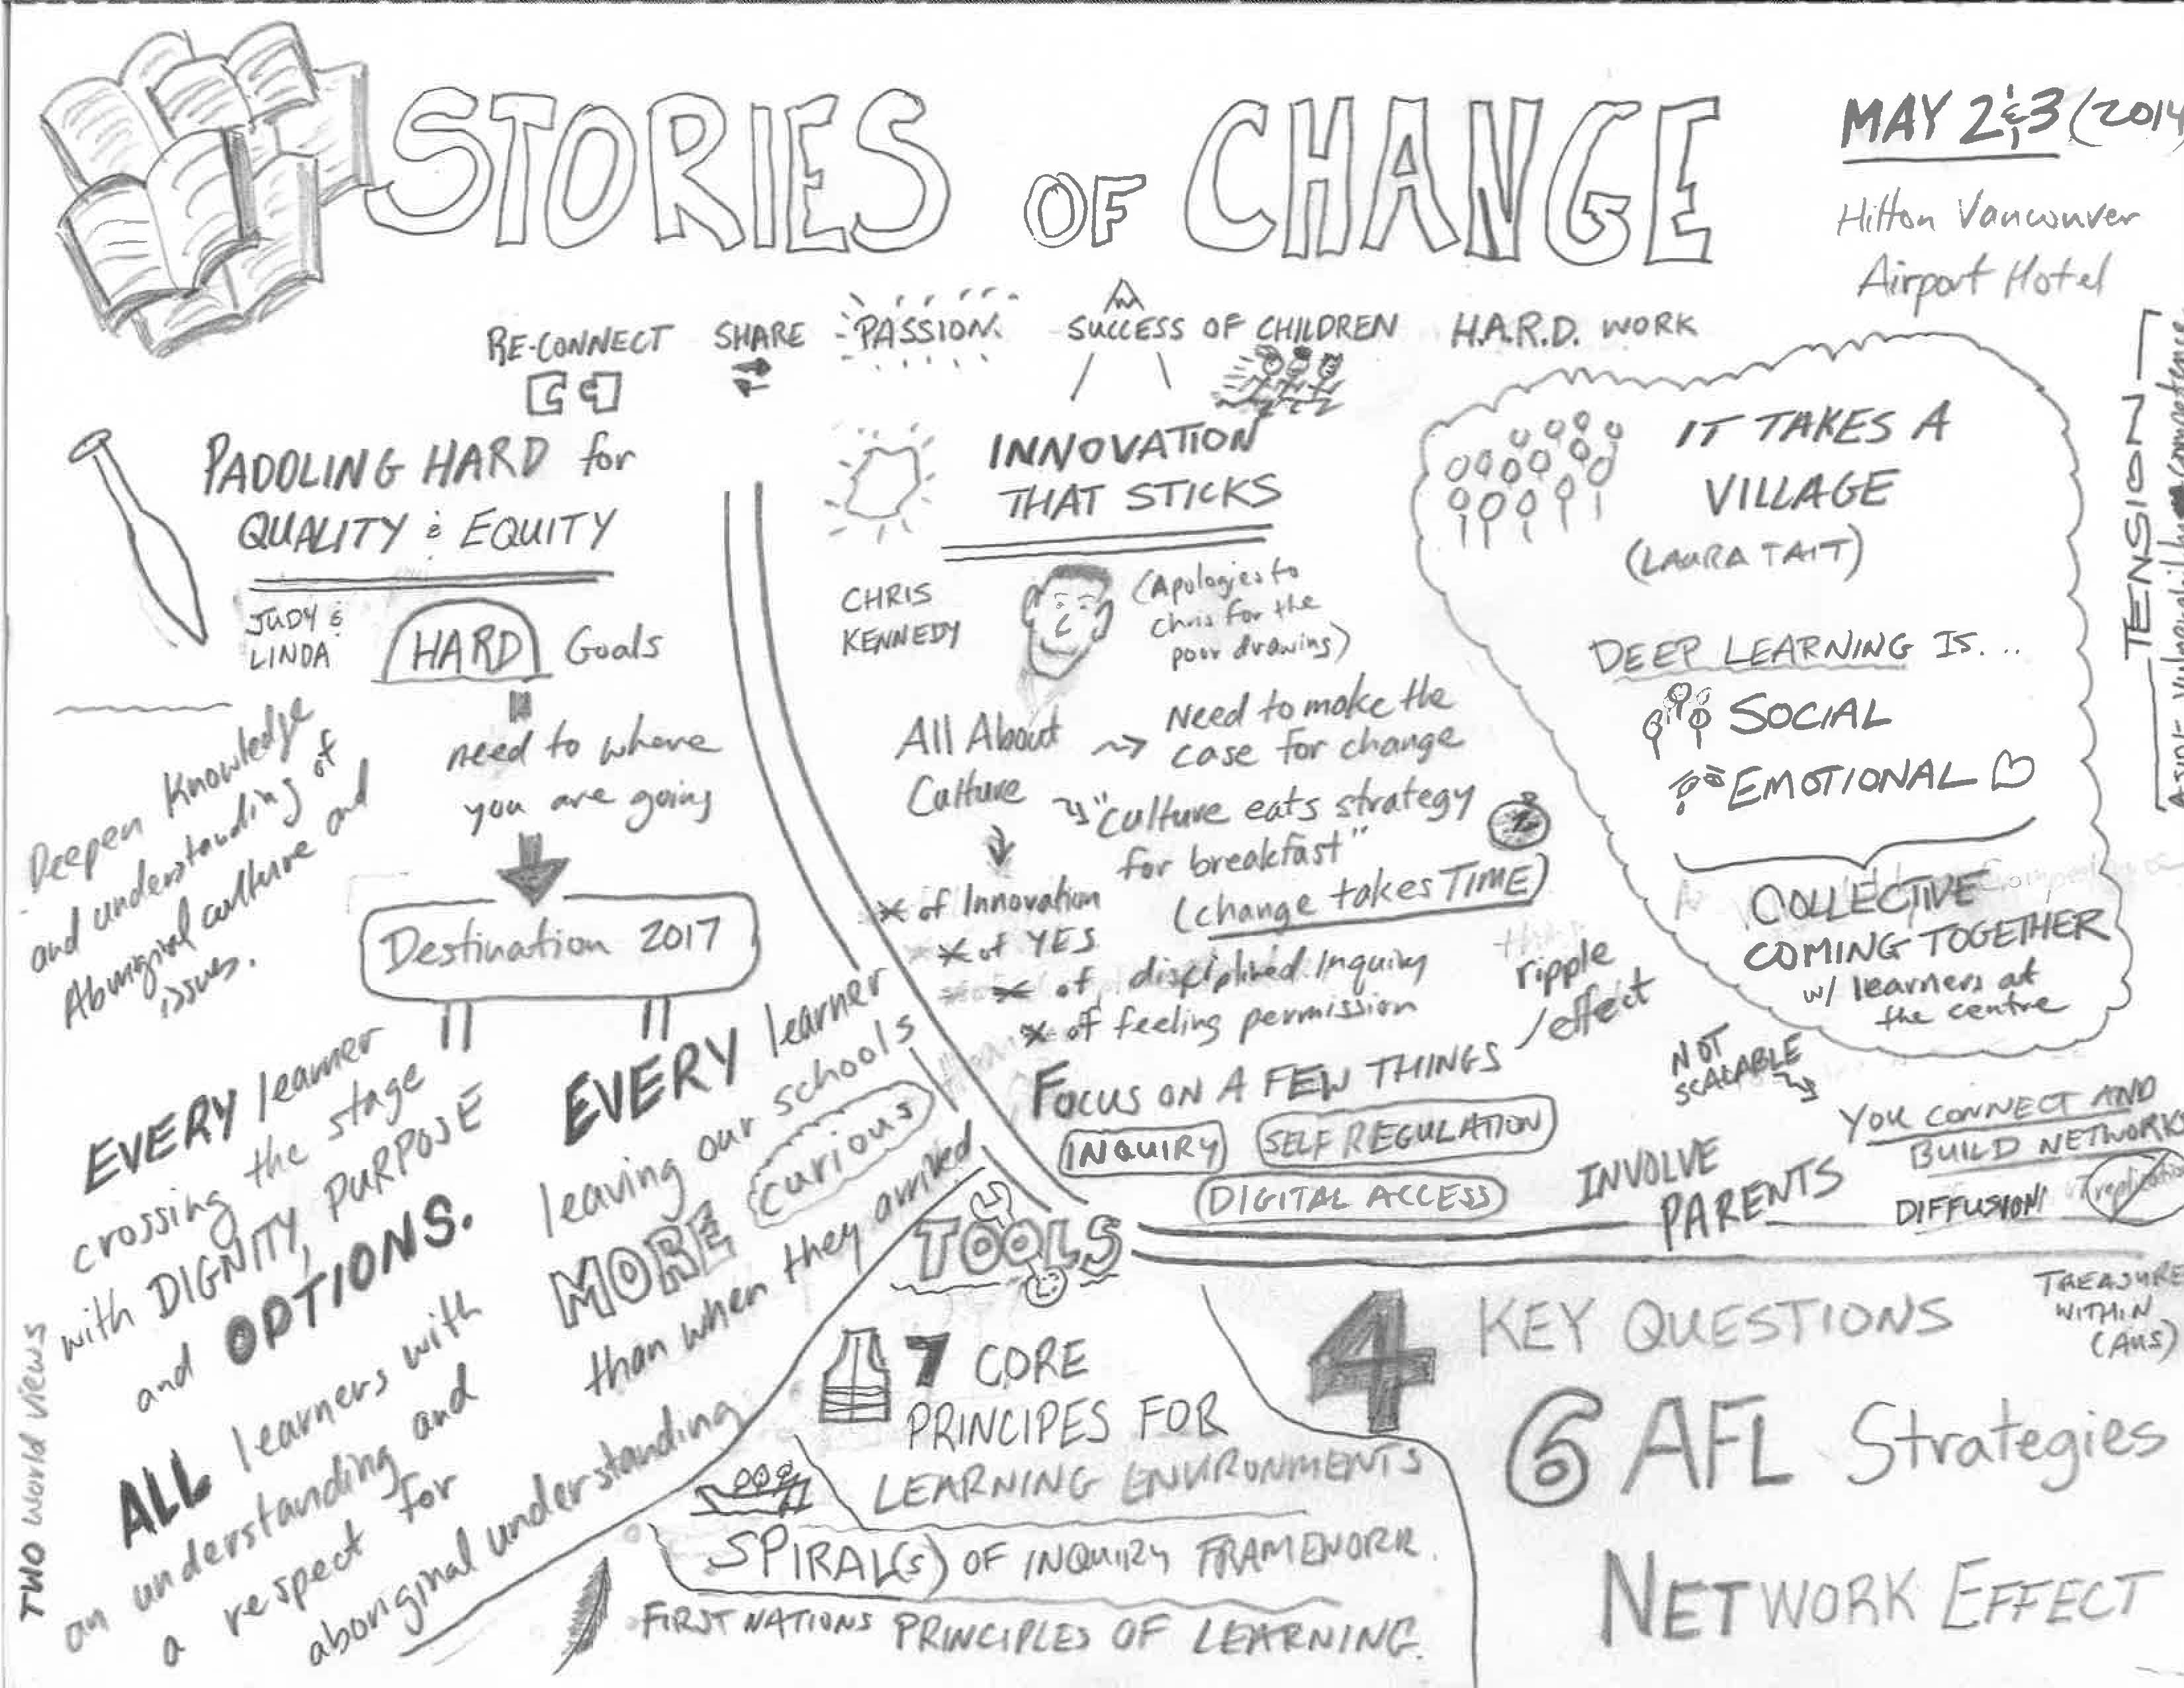 STORIES OF CHANGE
MAY 2 & 3 (2014
Hilton Vancouver
Airport Hotel
RE-CONNECT SHARE PASSION. SUCCESS OF CHILDREN H.A.R.D. WORK
PADDLING HARD for
QUALITY & EQUITY
JUDY &
LINDA
HARD Goals
need to where
you are going
Destination 2017
Deepen Knowledge
and understanding of
Aboriginal culture and
issues.
EVERY learner
crossing the stage
with DIGNITY, PURPOSE
and OPTIONS.
EVERY learner
leaving our schools
MORE curious
than when they arrived
ALL learners with
an understanding and
a respect for
aboriginal understanding
TWO world views
INNOVATION
THAT STICKS
CHRIS
KENNEDY
(Apologies to
Chris for the
poor drawing)
All About
Culture
Need to make the
case for change
"culture eats strategy
for breakfast"
(change takes TIME)
* of Innovation
* of YES
* of disciplined Inquiry
* of feeling permission
ripple
effect
FOCUS ON A FEW THINGS
INQUIRY SELF REGULATION
DIGITAL ACCESS
INVOLVE
PARENTS
IT TAKES A
VILLAGE
(LAURA TAIT)
DEEP LEARNING IS...
SOCIAL
EMOTIONAL
COLLECTIVE
COMING TOGETHER
w/ learners at
the centre
TENSION
NOT
SCALABLE
YOU CONNECT AND
BUILD NETWORKS
DIFFUSION!
TOOLS
7 CORE
PRINCIPES FOR
LEARNING ENVIRONMENTS
SPIRAL(S) OF INQUIRY FRAMEWORK.
FIRST NATIONS PRINCIPLES OF LEARNING.
4 KEY QUESTIONS
TREASURE
WITHIN
(Aus)
6 AFL Strategies
NETWORK EFFECT